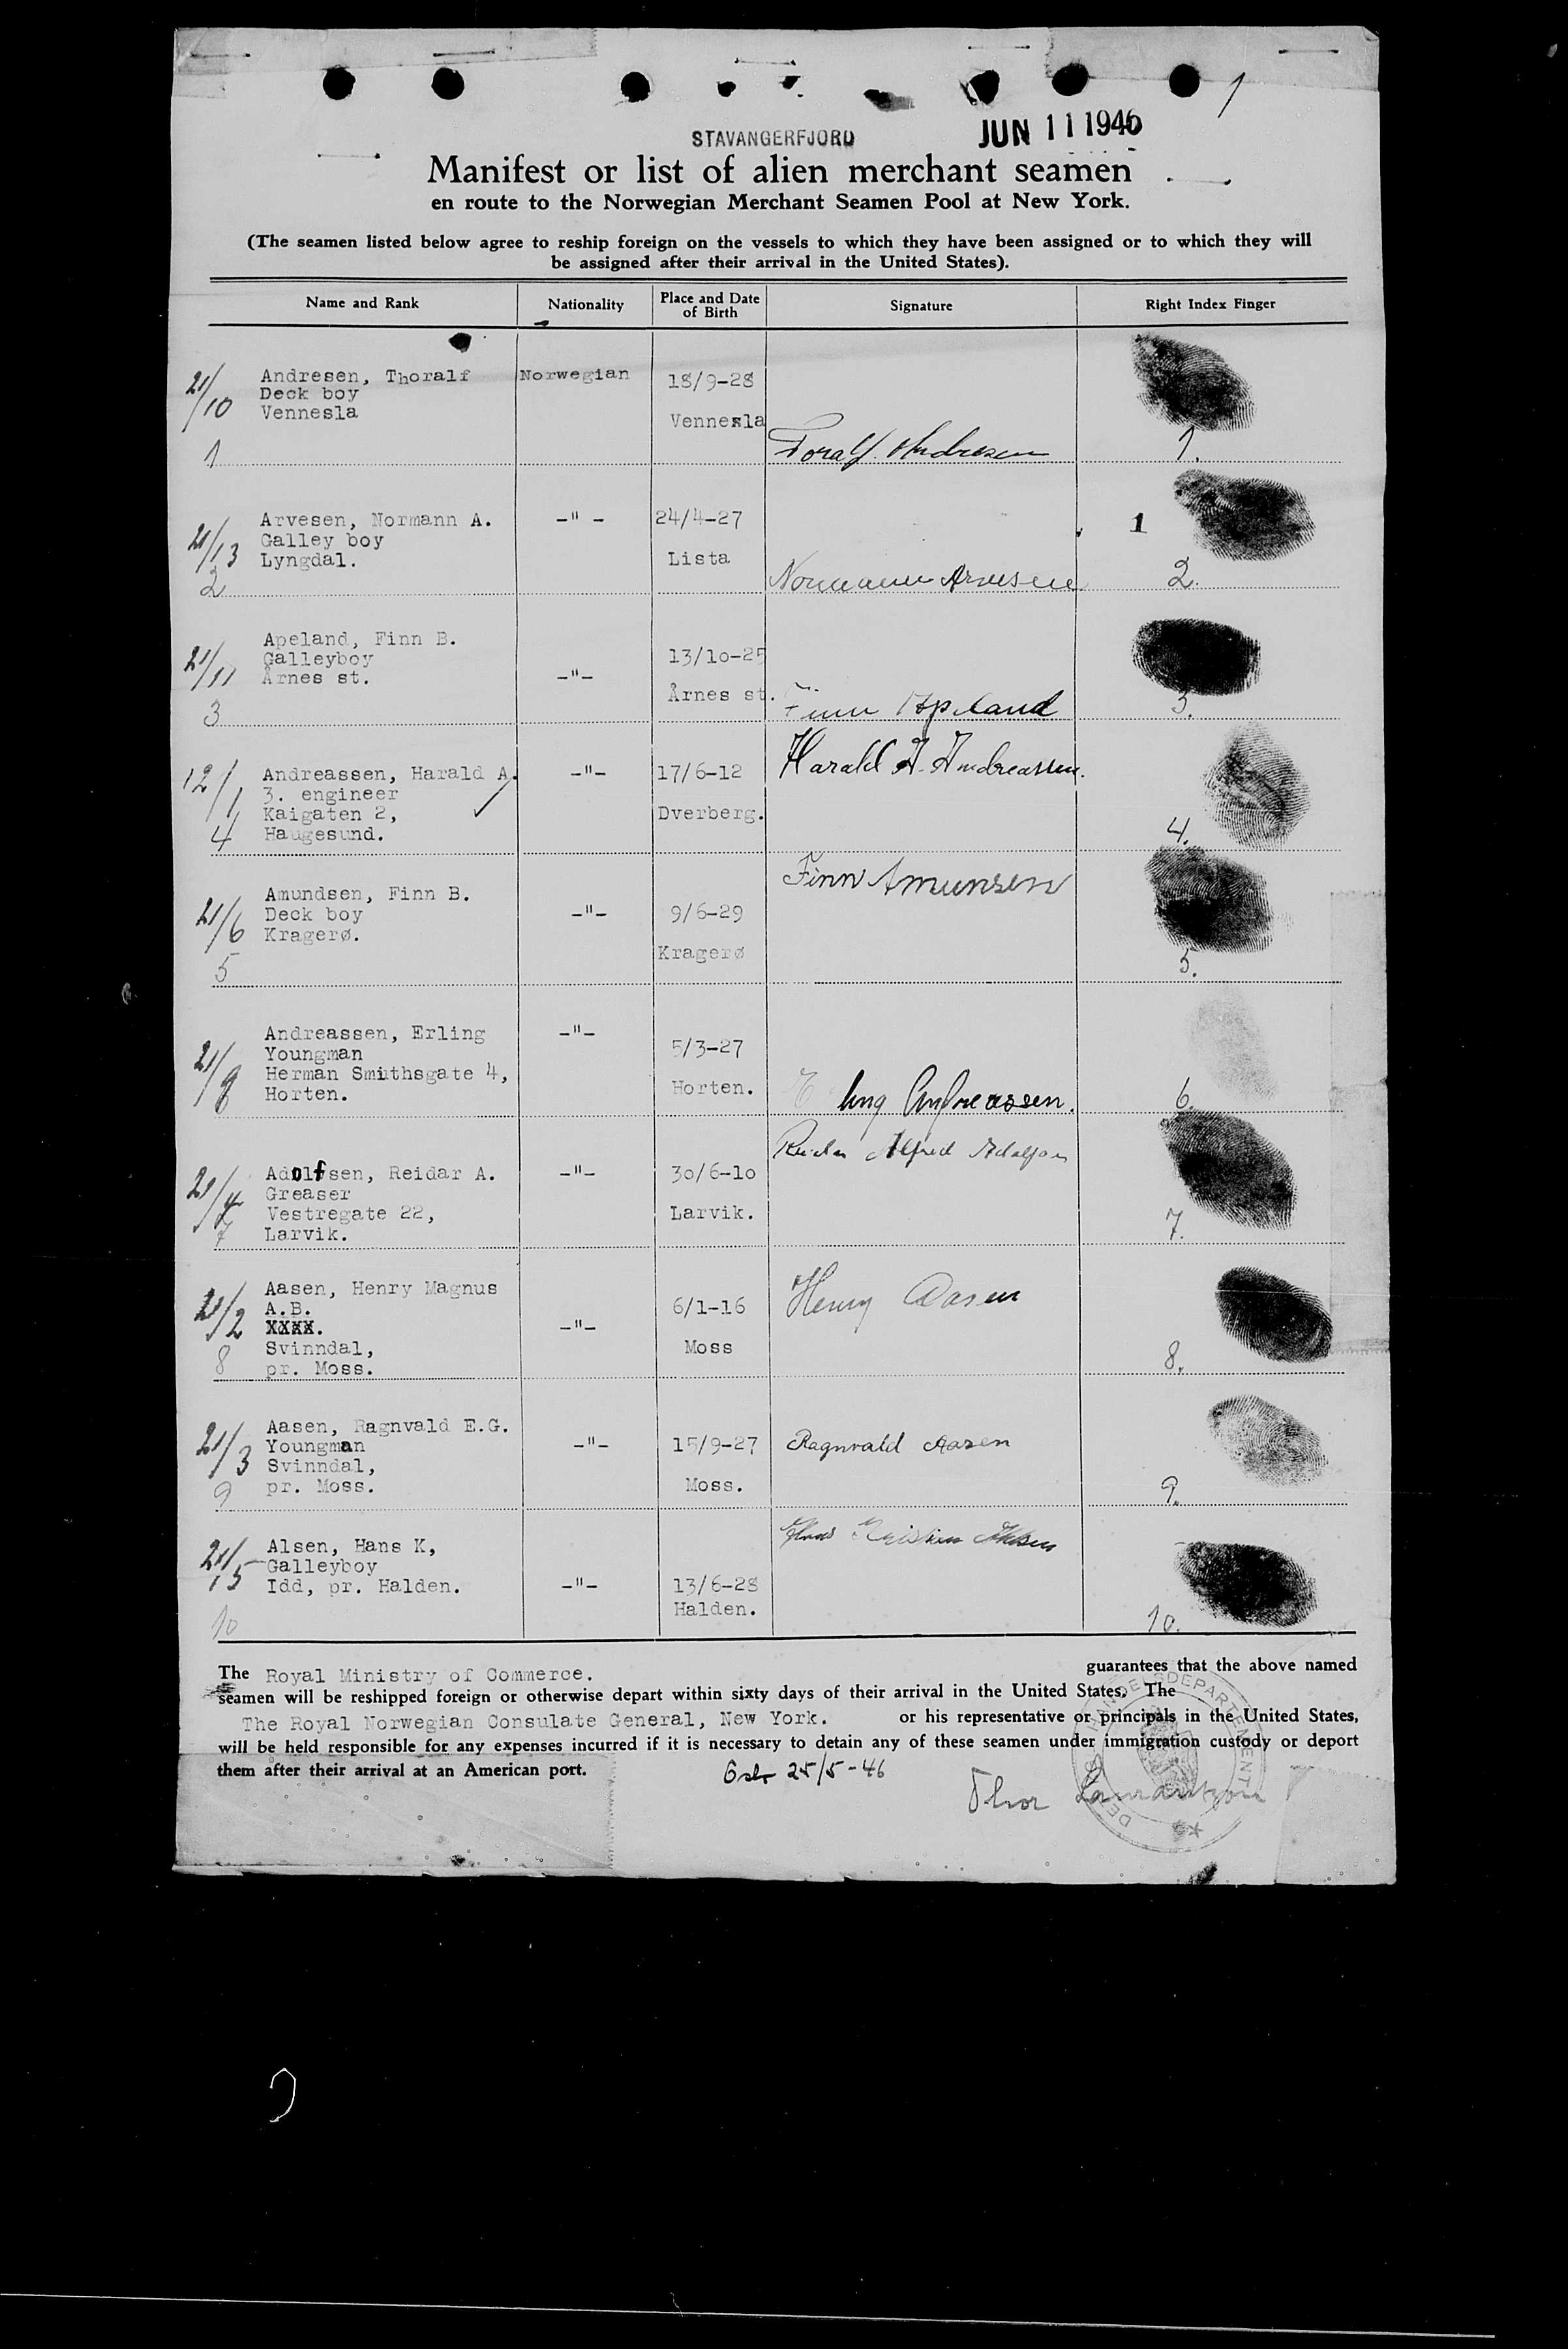 1
STAVANGERFJORD JUN 11 1946
Manifest or list of alien merchant seamen
en route to the Norwegian Merchant Seamen Pool at New York.
(The seamen listed below agree to reship foreign on the vessels to which they have been assigned or to which they will
be assigned after their arrival in the United States).
Name and Rank Nationality Place and Date of Birth Signature Right Index Finger
21/10 Andresen, Thoralf Norwegian 18/9-28
Deck boy
Vennesla Vennesla
1 Toralf Andresen 1.
21/13 Arvesen, Normann A. -"- 24/4-27 1
Galley boy
Lyngdal. Lista
2 Normann Arvesen 2.
21/11 Apeland, Finn B. 13/10-25
Galleyboy
Årnes st. -"- Årnes st.
3 Finn Apeland 3.
12/1 Andreassen, Harald A. -"- 17/6-12 Harald A. Andreassen.
3. engineer
Kaigaten 2, Dverberg.
4 Haugesund. 4.
21/6 Amundsen, Finn B. Finn Amunsen
Deck boy -"- 9/6-29
Kragerø. Kragerø
5 5.
21/9 Andreassen, Erling -"- 5/3-27
Youngman
Herman Smithsgate 4, Horten.
Horten. Andreassen. 6.
21/4 Adolfsen, Reidar A. -"- 30/6-10 Reidar Alfred Adolfsen
Greaser
Vestregate 22, Larvik.
7 Larvik. 7.
21/2 Aasen, Henry Magnus 6/1-16 Henry Aasen
A.B.
XXXX. -"-
Svinndal, Moss
8 pr. Moss. 8.
21/3 Aasen, Ragnvald E.G. -"- 15/9-27 Ragnvald Aasen
Youngman
Svinndal,
9 pr. Moss. Moss. 9.
21/15 Alsen, Hans K, Hans Kristian Alsen
Galleyboy
Idd, pr. Halden. -"- 13/6-28
Halden.
10 10.
The Royal Ministry of Commerce. guarantees that the above named
seamen will be reshipped foreign or otherwise depart within sixty days of their arrival in the United States. The
The Royal Norwegian Consulate General, New York. or his representative or principals in the United States,
will be held responsible for any expenses incurred if it is necessary to detain any of these seamen under immigration custody or deport
them after their arrival at an American port.
25/5-46
Thor